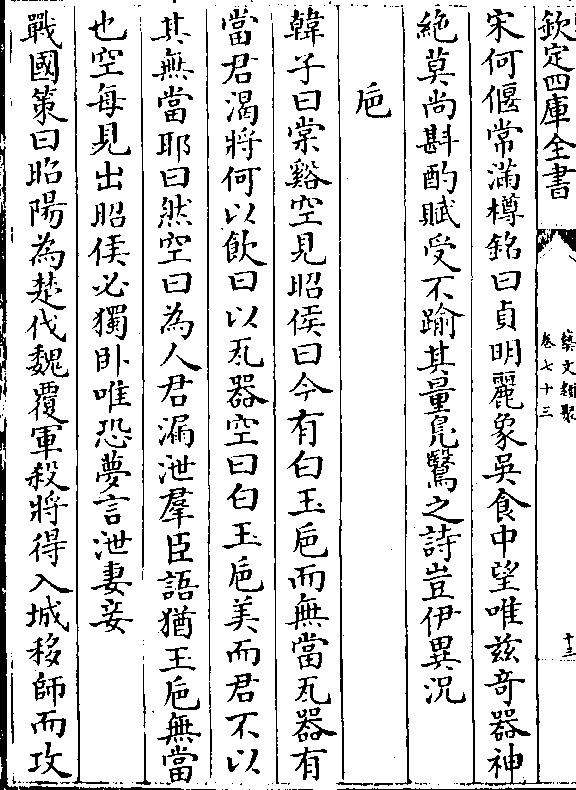 欽定四庫全書
藝文類聚
卷七十三
十三
宋何偃常滿樽銘曰貞明麗象吳食中望唯兹奇器神
絶莫尚斟酌賦受不踰其量鳬鷖之詩豈伊異況
巵
韓子曰棠谿空見昭侯曰今有白玉巵而無當瓦器有
當君渴將何以飲曰以瓦器空曰白玉巵美而君不以
其無當耶曰然空曰為人君漏泄羣臣語猶玉巵無當
也空每見出昭侯必獨卧唯恐夢言泄妻妾
戰國策曰昭陽為楚伐魏覆軍殺將得入城移師而攻